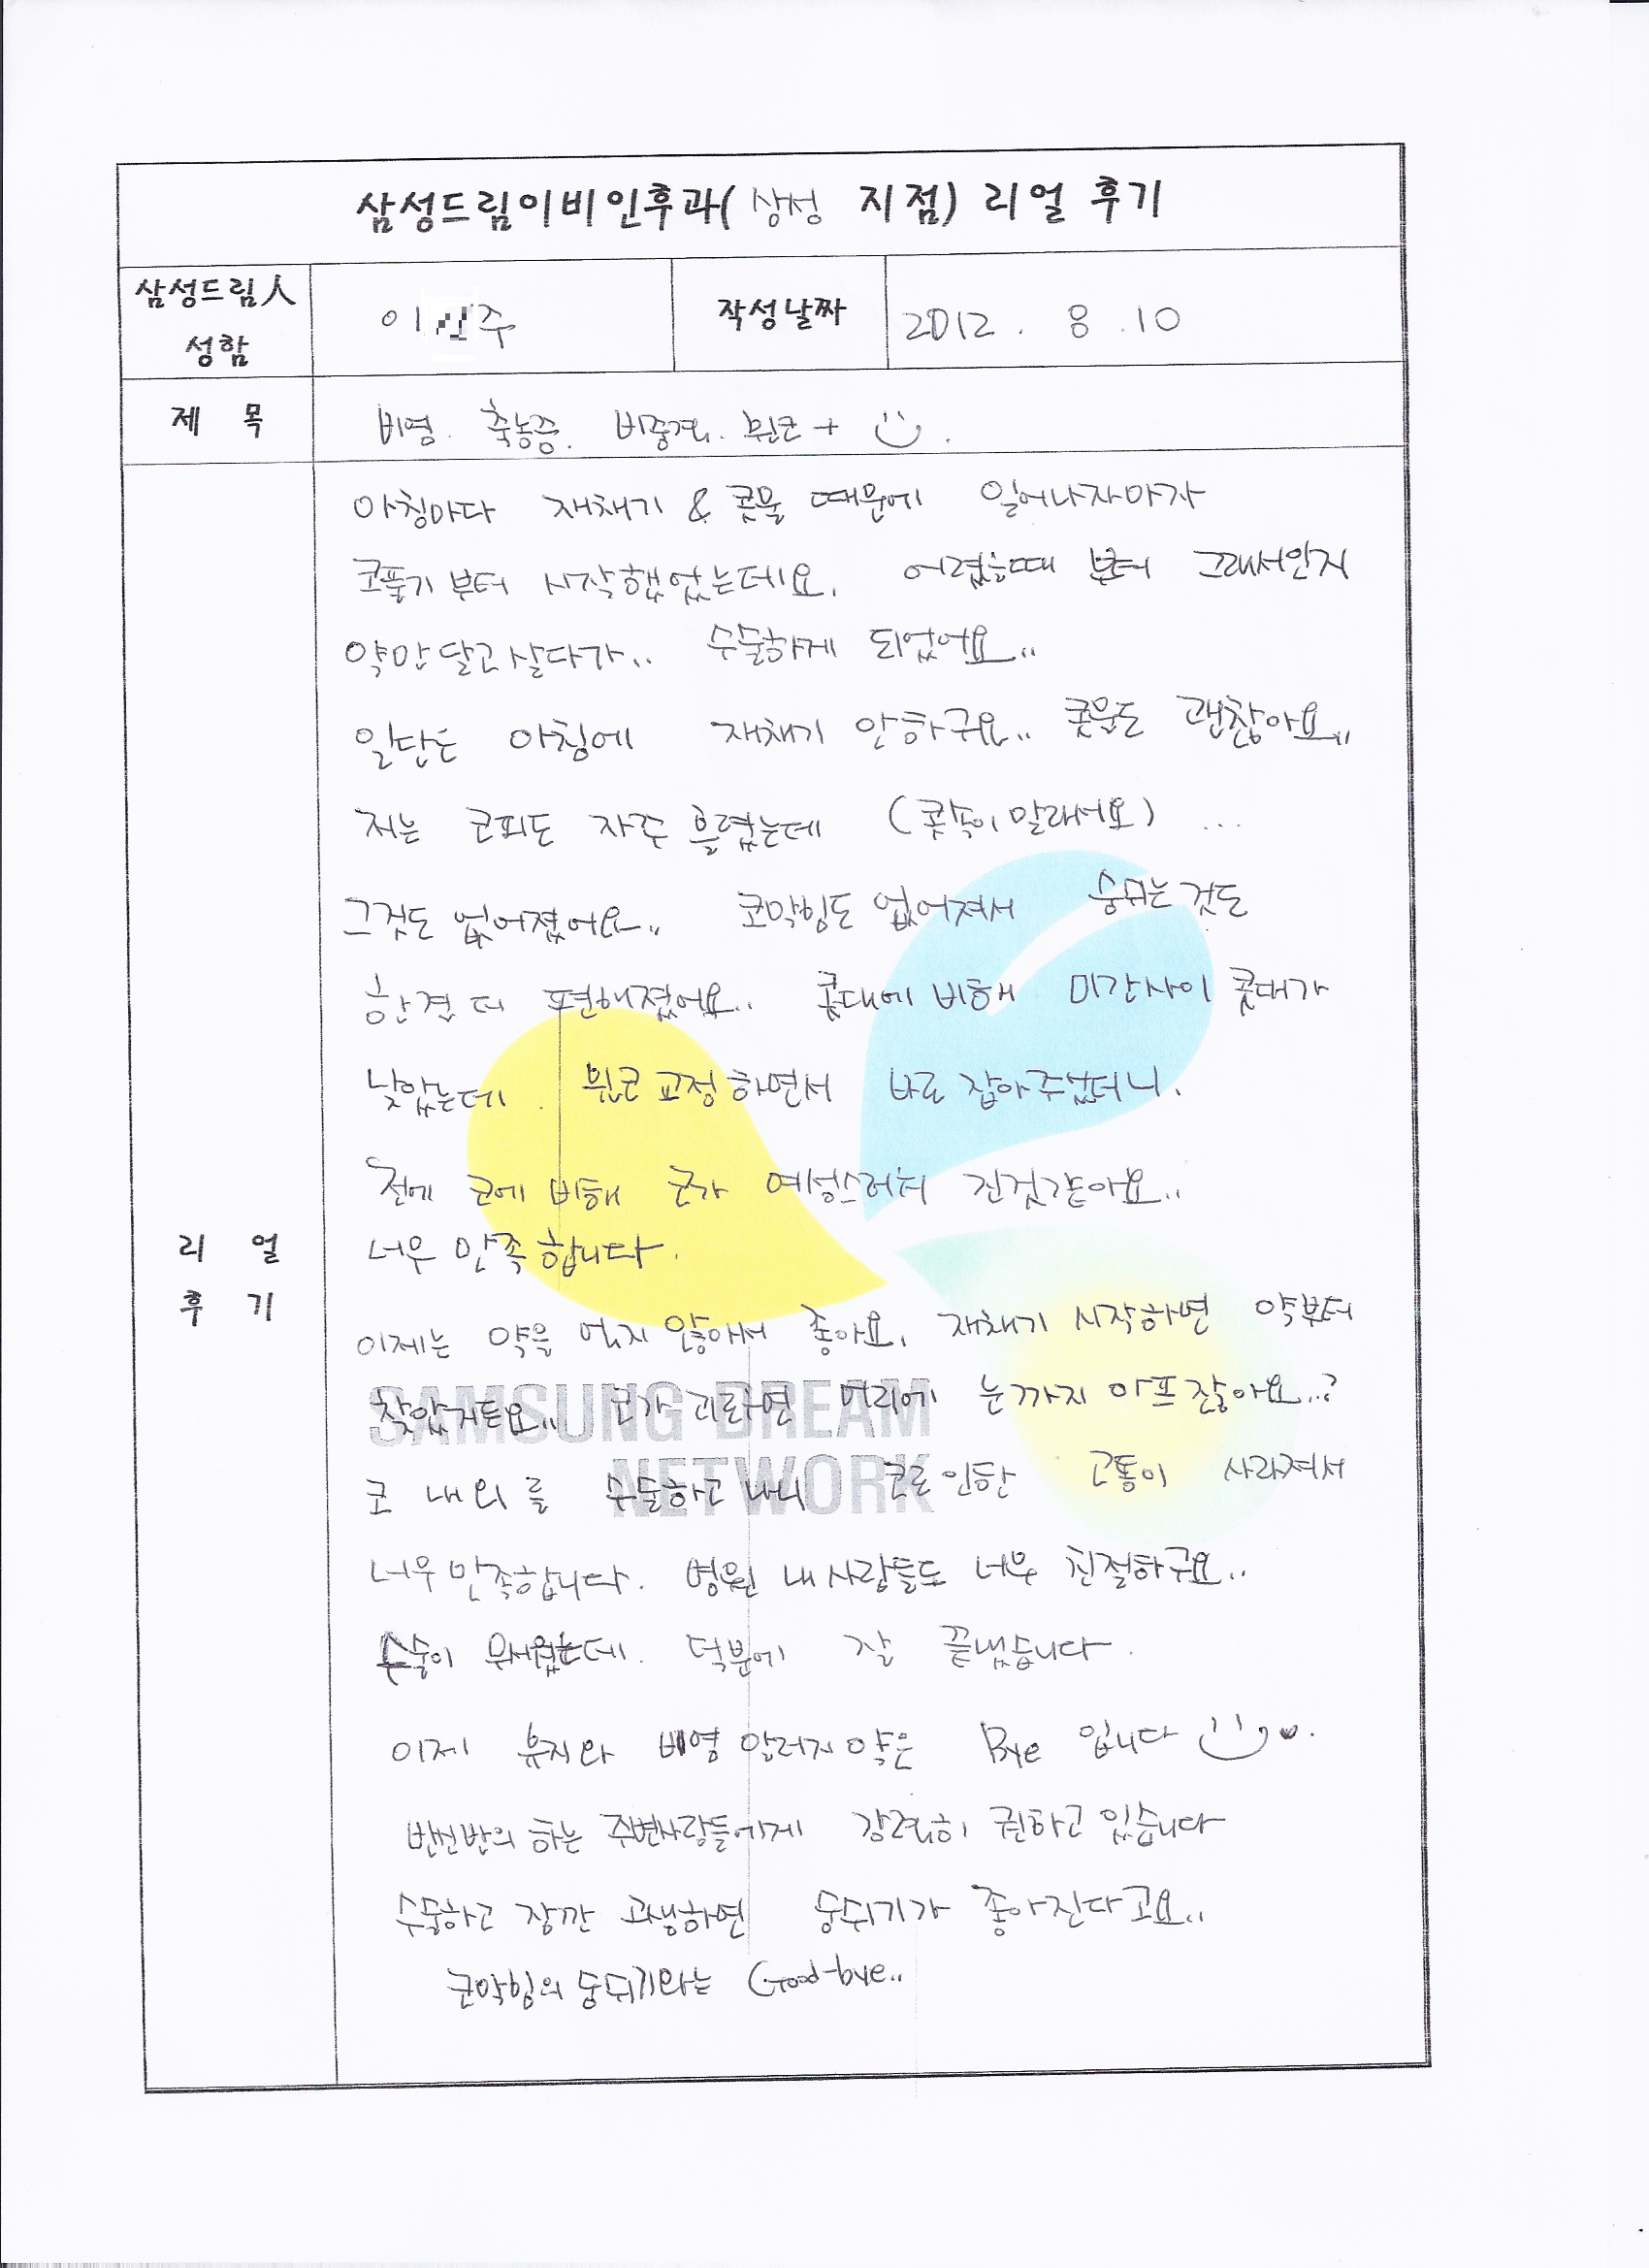 삼성드림이비인후과( 삼성 지점) 리얼 후기
삼성드림人 성함
이 주
작성날짜
2012. 8.10
제 목
비염. 축농증. 비중격. 휜코 +
리 얼 후 기
아침마다 재채기 & 콧물 때문에 일어나자마자
코풀기 부터 시작했었는데요. 어렸을때 부터 그래서인지
약만 달고 살다가.. 수술하게 되었어요..
일단은 아침에 재채기 안하구요.. 콧물도 괜찮아요..
저는 코피도 자주 흘렸는데 (콧속이 말라서요) ...
그것도 없어졌어요.. 코막힘도 없어져서 숨쉬는 것도
한결 더 편해졌어요.. 콧대에 비해 미간사이 콧대가
낮았는데. 휜코 교정하면서 바로 잡아주셨더니.
전에 코에 비해 코가 여성스러워 진것같아요..
너무 만족 합니다.
이제는 약을 먹지 않아서 좋아요. 재채기 시작하면 약부터
찾았거든요.. 코가 괴로우면 머리에 눈까지 아프잖아요..?
SAMSUNG DREAM
NETWORK
코 내외를 수술하고 나니 코로 인한 고통이 사라져서
너무 만족합니다. 병원 내 사람들도 너무 친절하구요..
수술이 무서웠는데. 덕분에 잘 끝냈습니다.
이제 휴지와 비염 알러지약은 Bye 입니다
반신반의 하는 주변사람들에게 강력히 권하고 있습니다
수술하고 잠깐 고생하면 숨쉬기가 좋아진다고요..
코막힘의 숨쉬기와는 Good-bye..